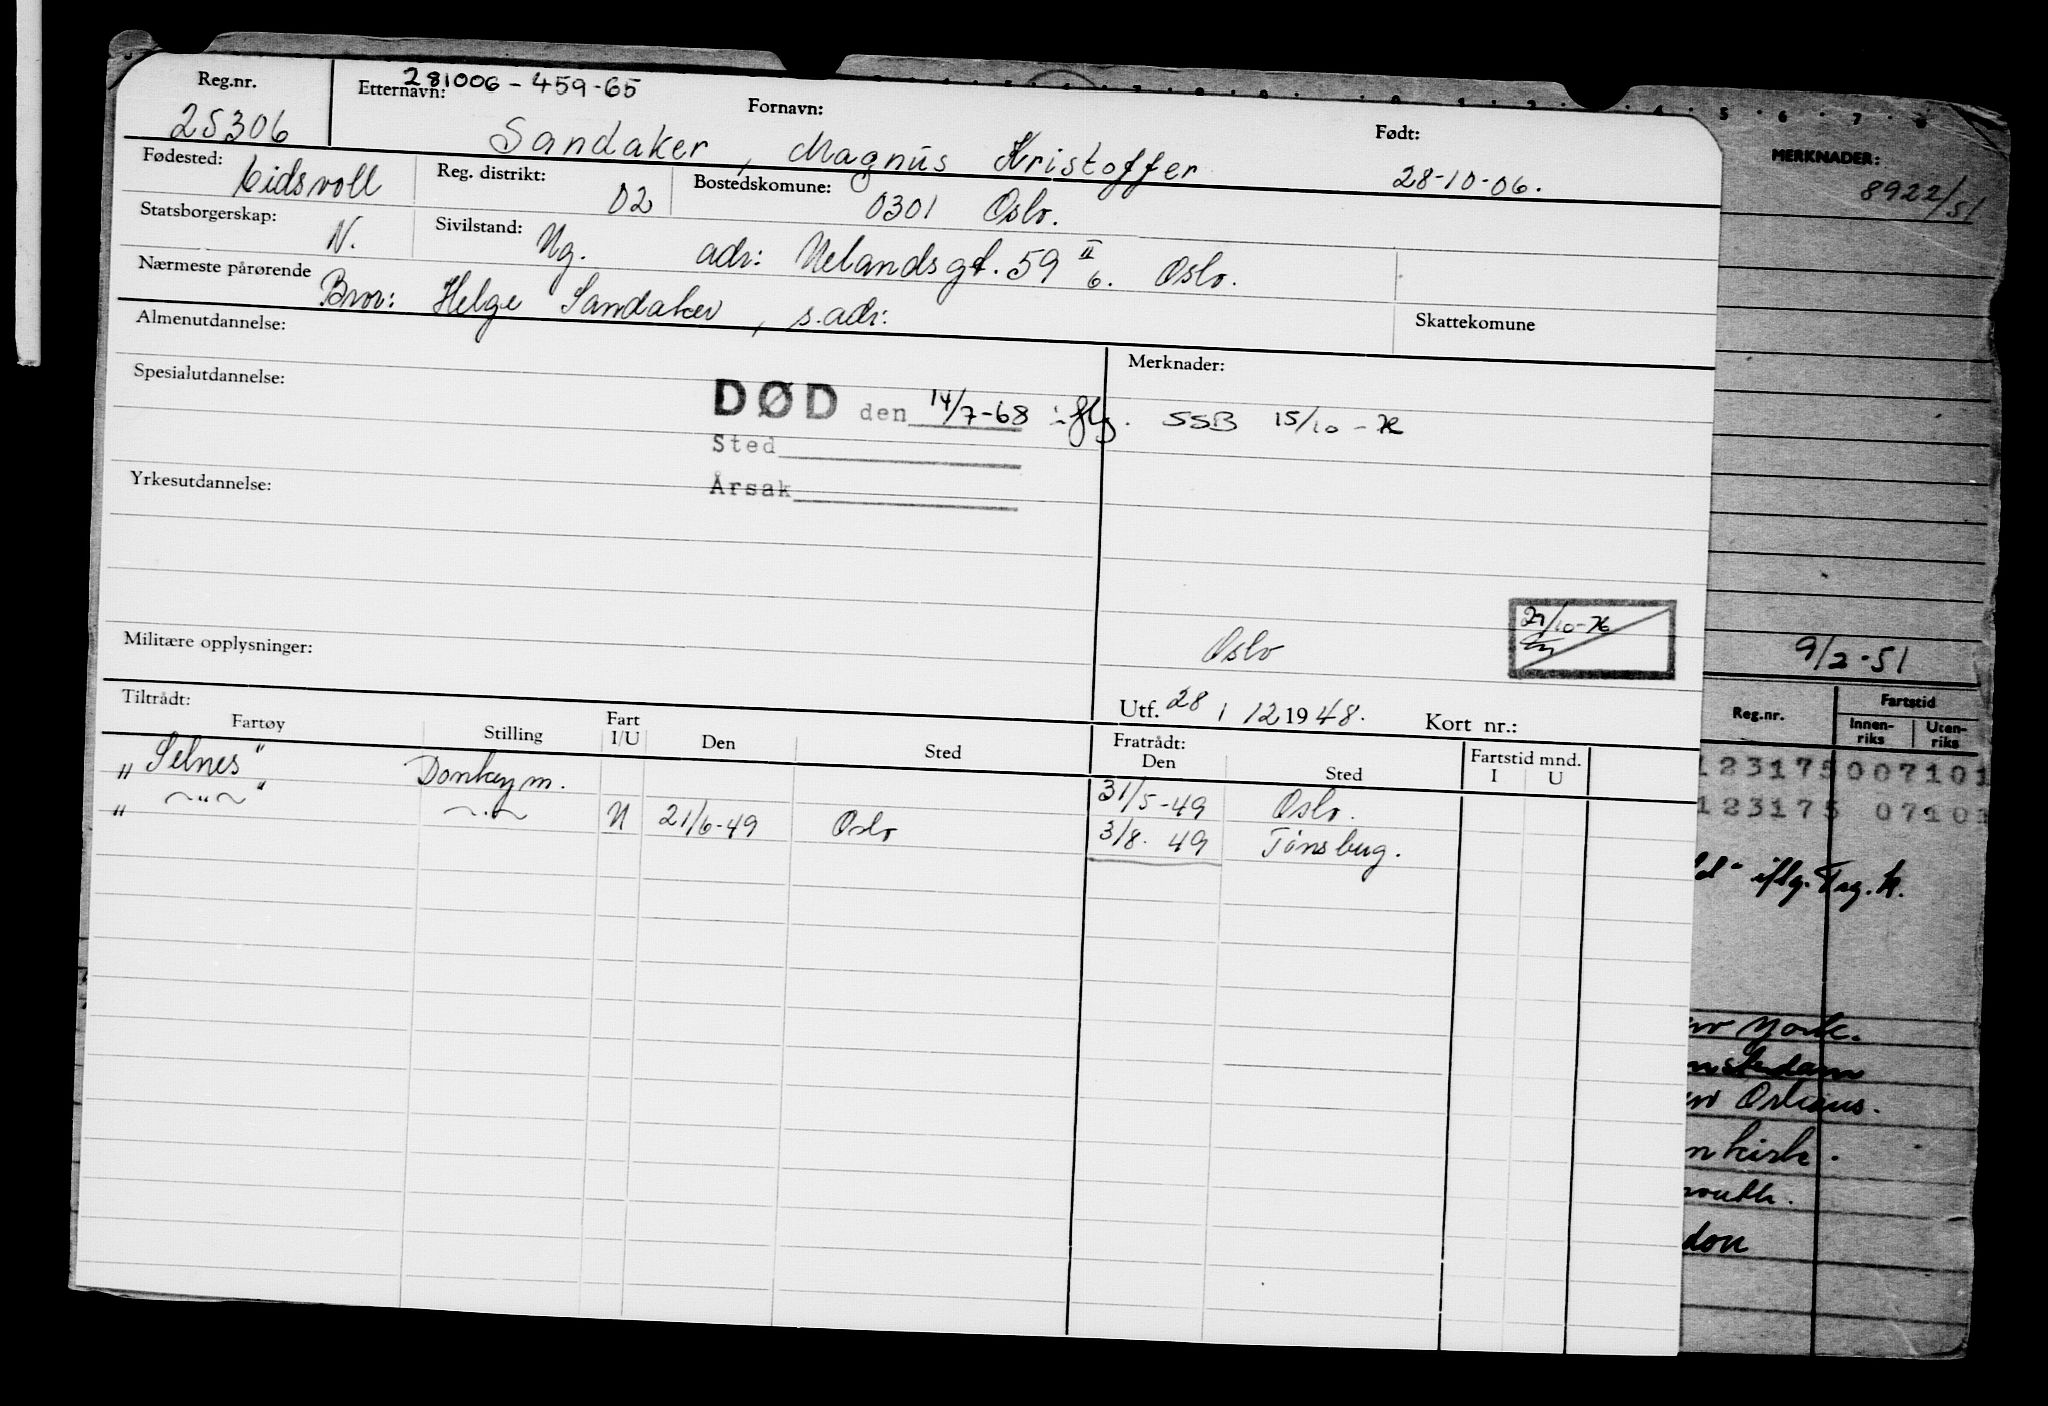 Reg.nr.
25306
281006-459-65
Etternavn: Fornavn: Født:
Sandaker, Magnus Kristoffer 28-10-06.
Fødested: Eidsvoll
Reg. distrikt: 02
Bostedskomune: 0301 Oslo.
Statsborgerskap: N.
Sivilstand: Ug.
adr: Uelandsgt. 59 II 6. Oslo.
Nærmeste pårørende
Bror: Helge Sandaker, s. adr.
Skattekomune
Almenutdannelse:
Merknader:
Spesialutdannelse:
DØD den 14/7-68 iflg. SSB 15/10-
Sted
Årsak
Yrkesutdannelse:
Oslo
Militære opplysninger:
Utf. 28/12 1948. Kort nr.:
Tiltrådt: Fratrådt:
Fartøy Stilling Fart I/U Den Sted Den Sted Fartstid mnd. I U
"Selnes" Donkeym. 31/5-49 Oslo.
" ~"~ " ~"~ U 21/6-49 Oslo 3/8. 49 Tønsberg.
MERKNADER:
8922/51
9/2-51
Reg.nr. Fartstid
Innenriks Utenriks
123175 007101
123175 07101
iflg. Trg. k.
York.
Orleans.